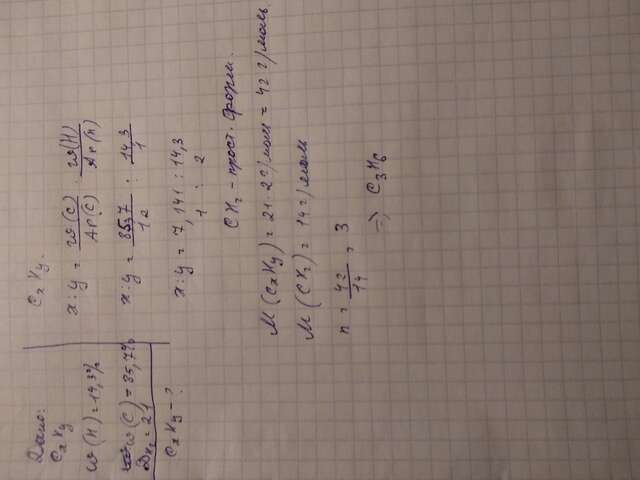 Дано:
CxHy
w(H) = 14,3%
w(C) = 85,7%
DH2 = 21
CxHy - ?
CxHy.
x:y = w(C)/Ar(C) : w(H)/Ar(H)
x:y = 85,7/12 : 14,3/1
x:y = 7,141 : 14,3
1 : 2
CH2 - прост. форм.
M(CxHy) = 21·2 г/моль = 42 г/моль.
M(CH2) = 14 г/моль
n = 42/14 = 3
=> C3H6